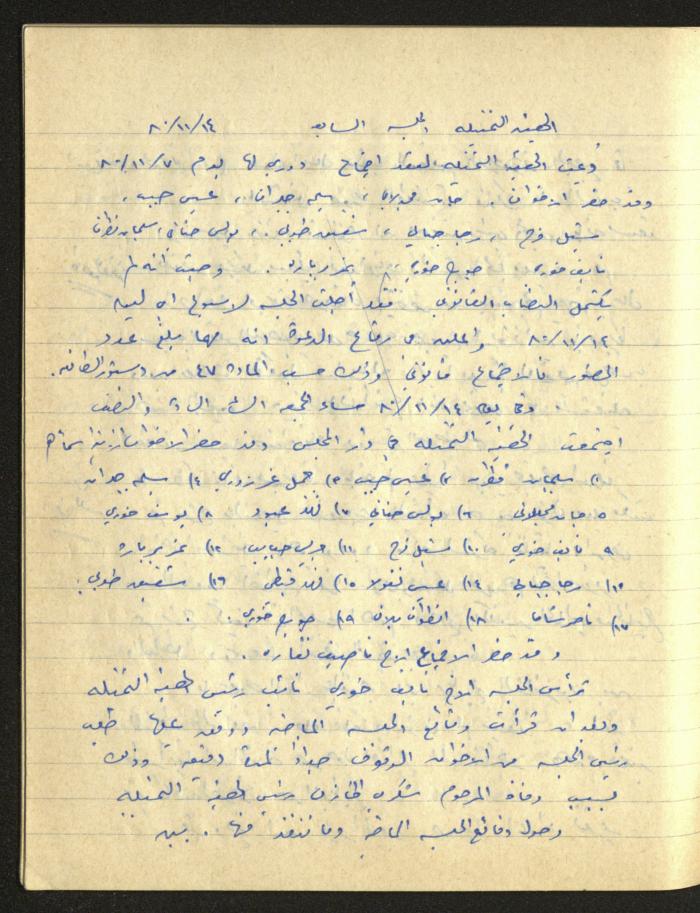 الهيئة التمثيلية الجلسة السابعة ٨٠/١١/١٤
دُعيت الهيئة التمثيلية لعقد اجتماع دوري لها يوم ٨٠/١١/٧
وقد حضر الاخوان، سليم جدران، عيسى حبيب،
مشيل فرح، رجا جبالي، شفيق طوبي، بولس حناني، سليمان قطران
نايف خوري جورج خوري، وحيث انه لم
يكتمل النصاب القانوني فقد أجلت الجلسة لاسبوع اي ليوم
٨٠/١١/١٤ واعلن في رقاع الدعوة انه مهما بلغ عدد
الحضور فالاجتماع قانوني وذلك حسب المادة ٤٧ من دستور الطائفة.
وفي يوم ٨٠/١١/١٤ مساء الجمعة الساعة والنصف
اجتمعت الهيئة التمثيلية في دار المجلس وقد حضر الاخوان اسماؤهم
١) سليمان قطران ٢) عيسى حبيب ٣) جميل ٤) سليم جدران
٥) ٦) بولس حناني ٧) فهد عبود ٨) يوسف خوري
٩) نايف خوري ١٠) مشيل فرح ١١) ١٢) عزيز
١٣) رجا جبالي ١٤) عيسى نقولا ١٥) فهد قبطي ١٦) شفيق طوبي
١٧) ناصر ١٨) انطوان ١٩) جورج خوري.
وقد حضر الاجتماع الاخ ناصيف نقاره.
ترأس الجلسة الاخ نايف خوري نائب رئيس الهيئة التمثيلية
وبعد ان قرأت وقائع الجلسة الماضية ووقع عليها طلب
رئيس الجلسة من الاخوان الوقوف حداداً لمدة دقيقة وذلك
بسبب وفاة المرحوم شكري الخازن رئيس الهيئة التمثيلية
وحول وقائع الجلسة الماضية وما نفذ منها.